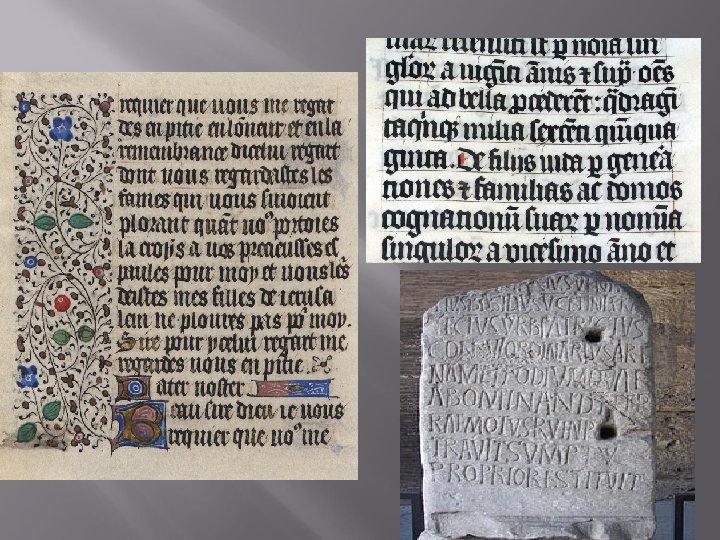 requier que uous me regar
des en pitie en lonneur et en la
remenbrance dicelui regart
dont uous regardastes les
fames qui uous suiuoient
plorant quãt uoꝰ portoies
la croiis a uos precieusses es
paules pour moy et uous les
deistes mes filles de ierusa
lem ne ploures pas po' moy.
Sire pour ycelui regart me
regardes uous en pitie.
Pater noster
Beau sire dieu ie uous
requier que uoꝰ me
recensiti st ꝑ noĩa sin
gloꝝ a uigĩti ãnis ⁊ sup̃ oẽs
qui ad bella ꝓcederẽt: q̃dragĩ
taq̃nqꝫ milia sexcẽti quĩqua
ginta. De filiis iuda ꝑ genea
tiones ⁊ familias ac domos
cognationũ suaꝝ ꝑ nomĩa
singuloꝝ a vicesimo ãno et
TIUSBASILIUSVCETINL
FECTVSVRBIPATRICIVS
ORDINARIVSARE
NAMETPODIVM
ABOMINAND
RAEMOTVSRVINP
TRAVITSVMPTV
PROPRIORESTITVIT